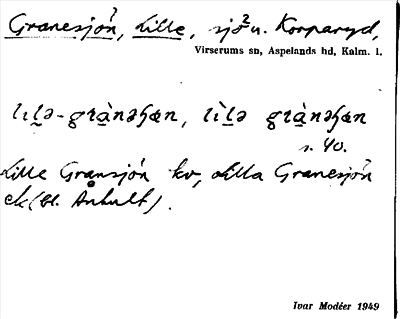 Granesjön, Lille, sjö 2 u. Korparyd,
Virserums sn, Aspelands hd, Kalm. l.
lɪl̠ə-gra̠nəɧœn, lìl̠ə gra̠nəɧœn
s. 40.
Lille Gransjön kv, Lilla Granesjön
ek (bl. Århult).
Ivar Modéer 1949